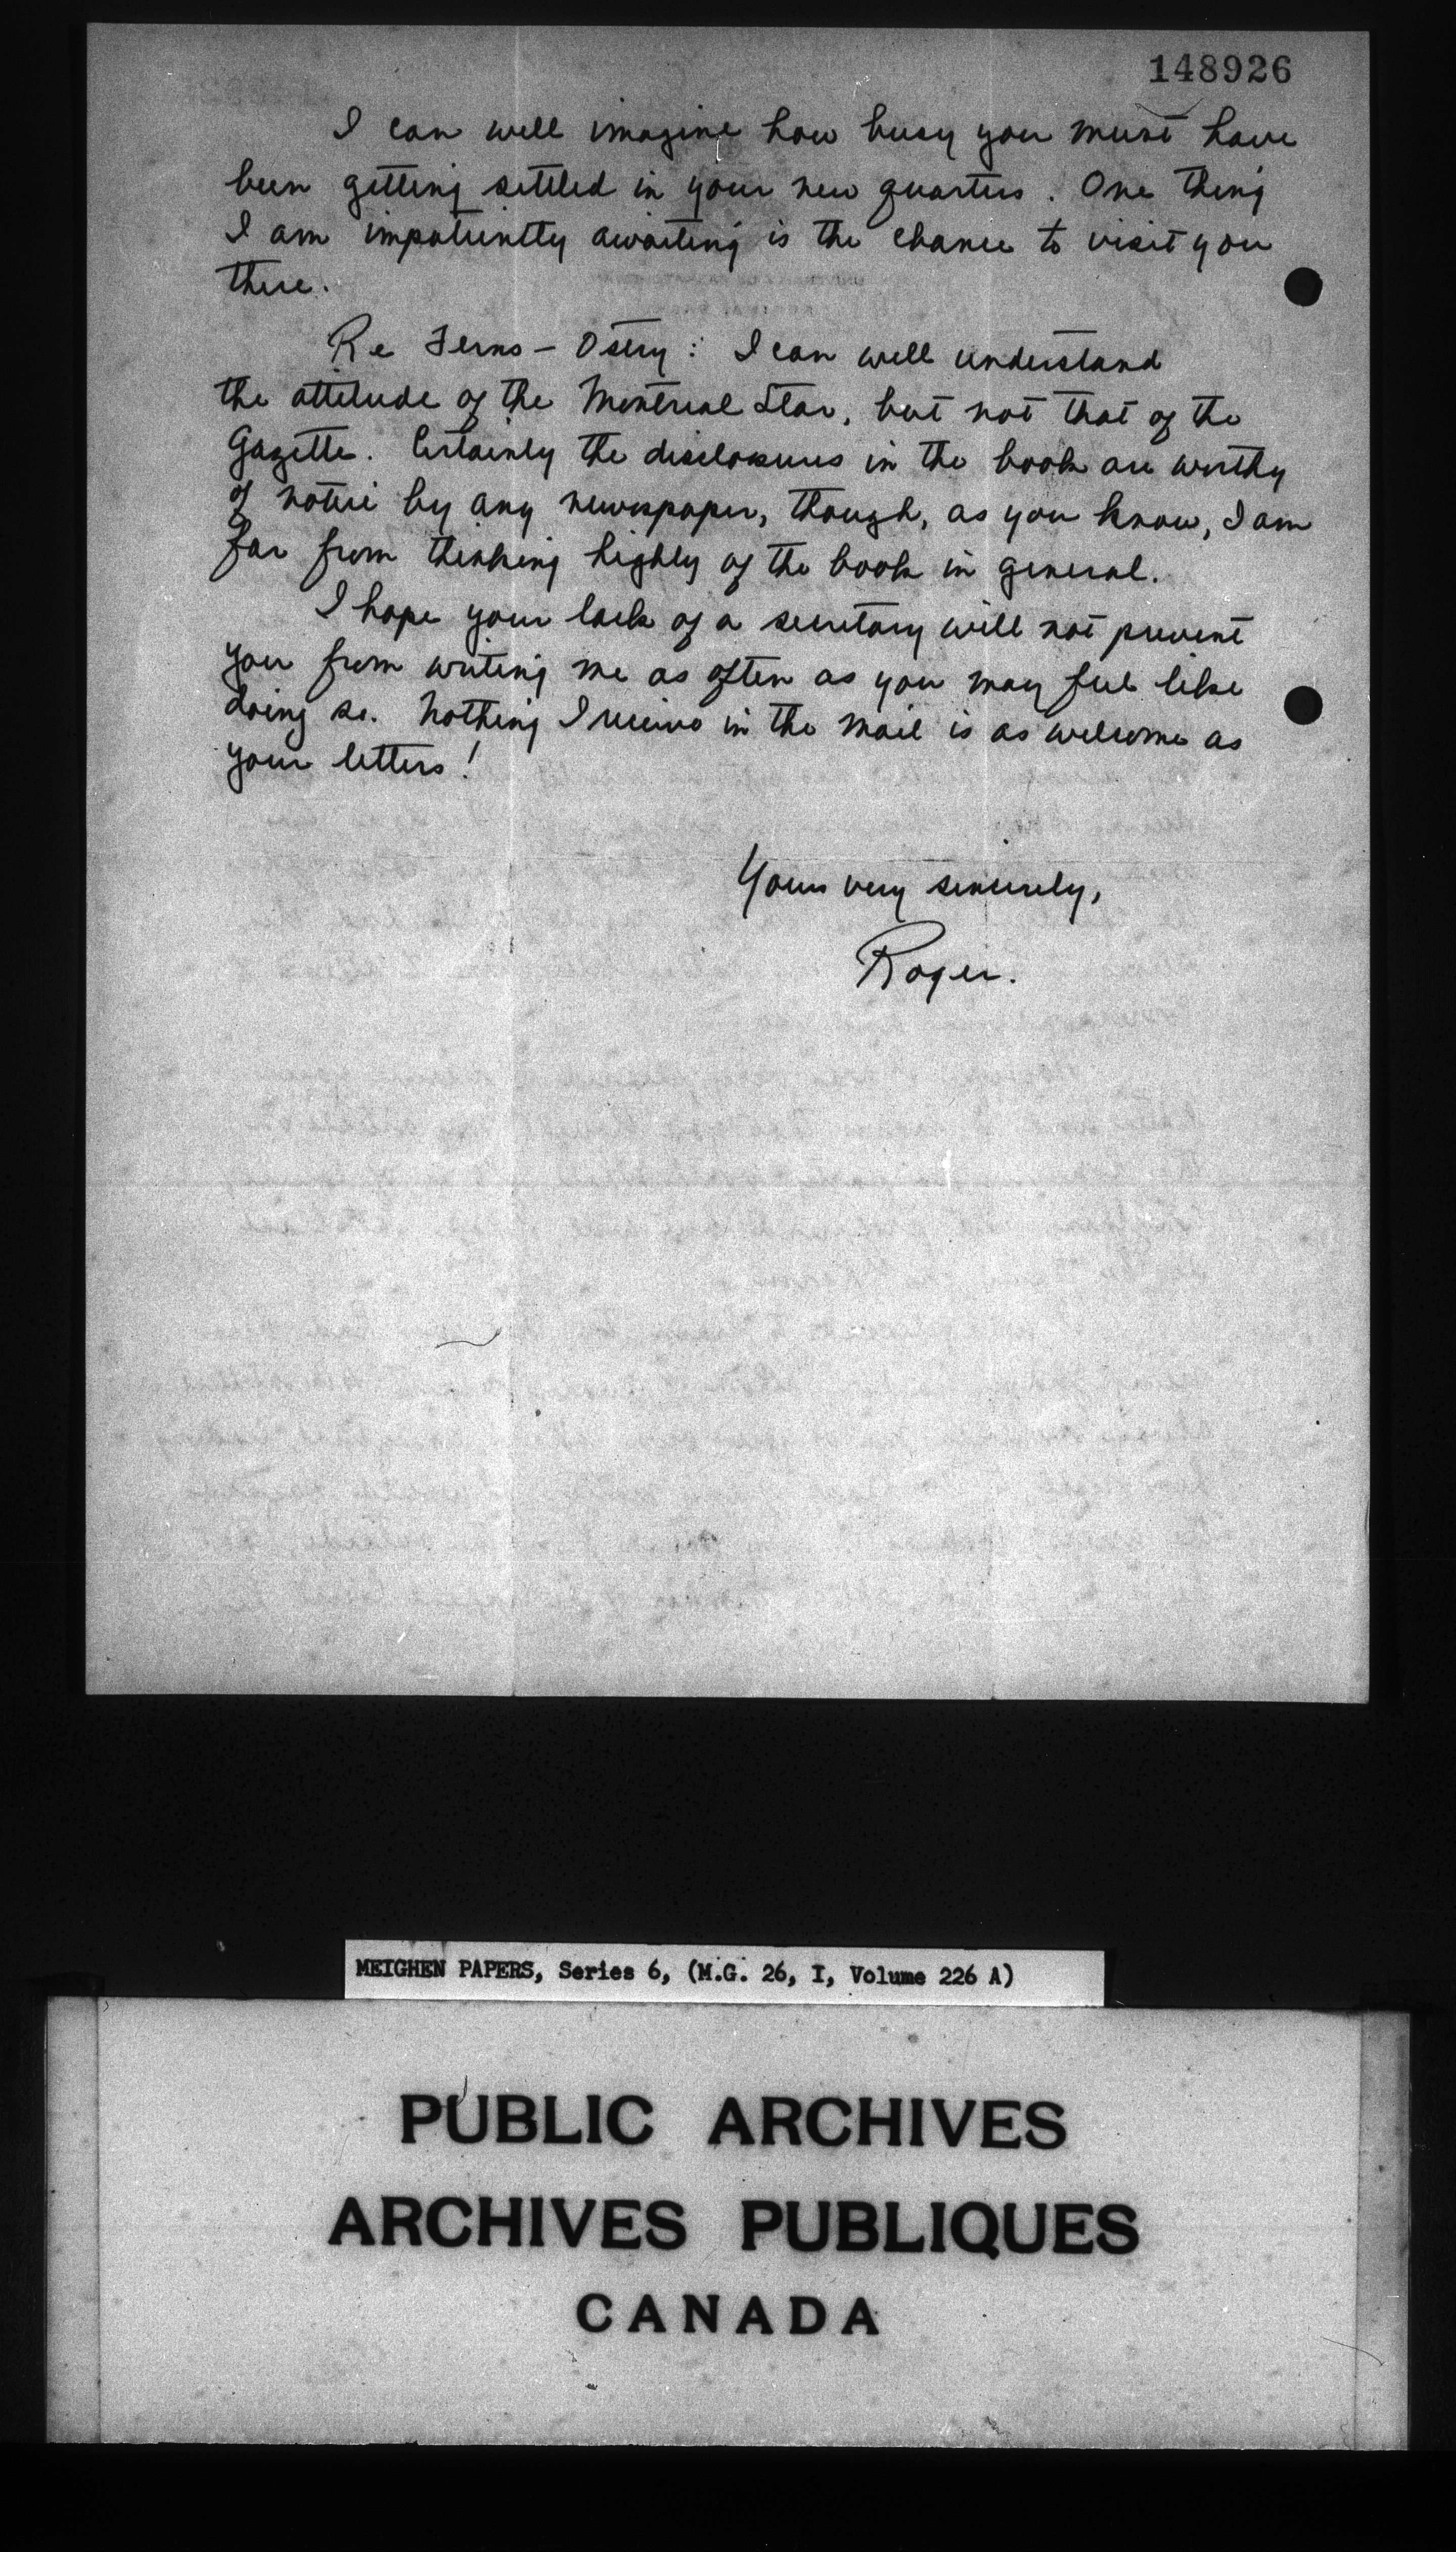 148926
I can well imagine how busy you must have
been getting settled in your new quarters. One thing
I am impatiently awaiting is the chance to visit you
there.
Re Ferns – Ostry: I can well understand
the attitude of the Montreal Star, but not that of the
Gazette. Certainly the disclosures in the book are worthy
of notice by any newspaper, though, as you know, I am
far from thinking highly of the book in general.
I hope your lack of a secretary will not prevent
you from writing me as often as you may feel like
doing so. Nothing I receive in the mail is as welcome as
your letters!
Yours very sincerely,
Roger.
MEIGHEN PAPERS, Series 6, (M.G. 26, I, Volume 226 A)
PUBLIC ARCHIVES
ARCHIVES PUBLIQUES
CANADA